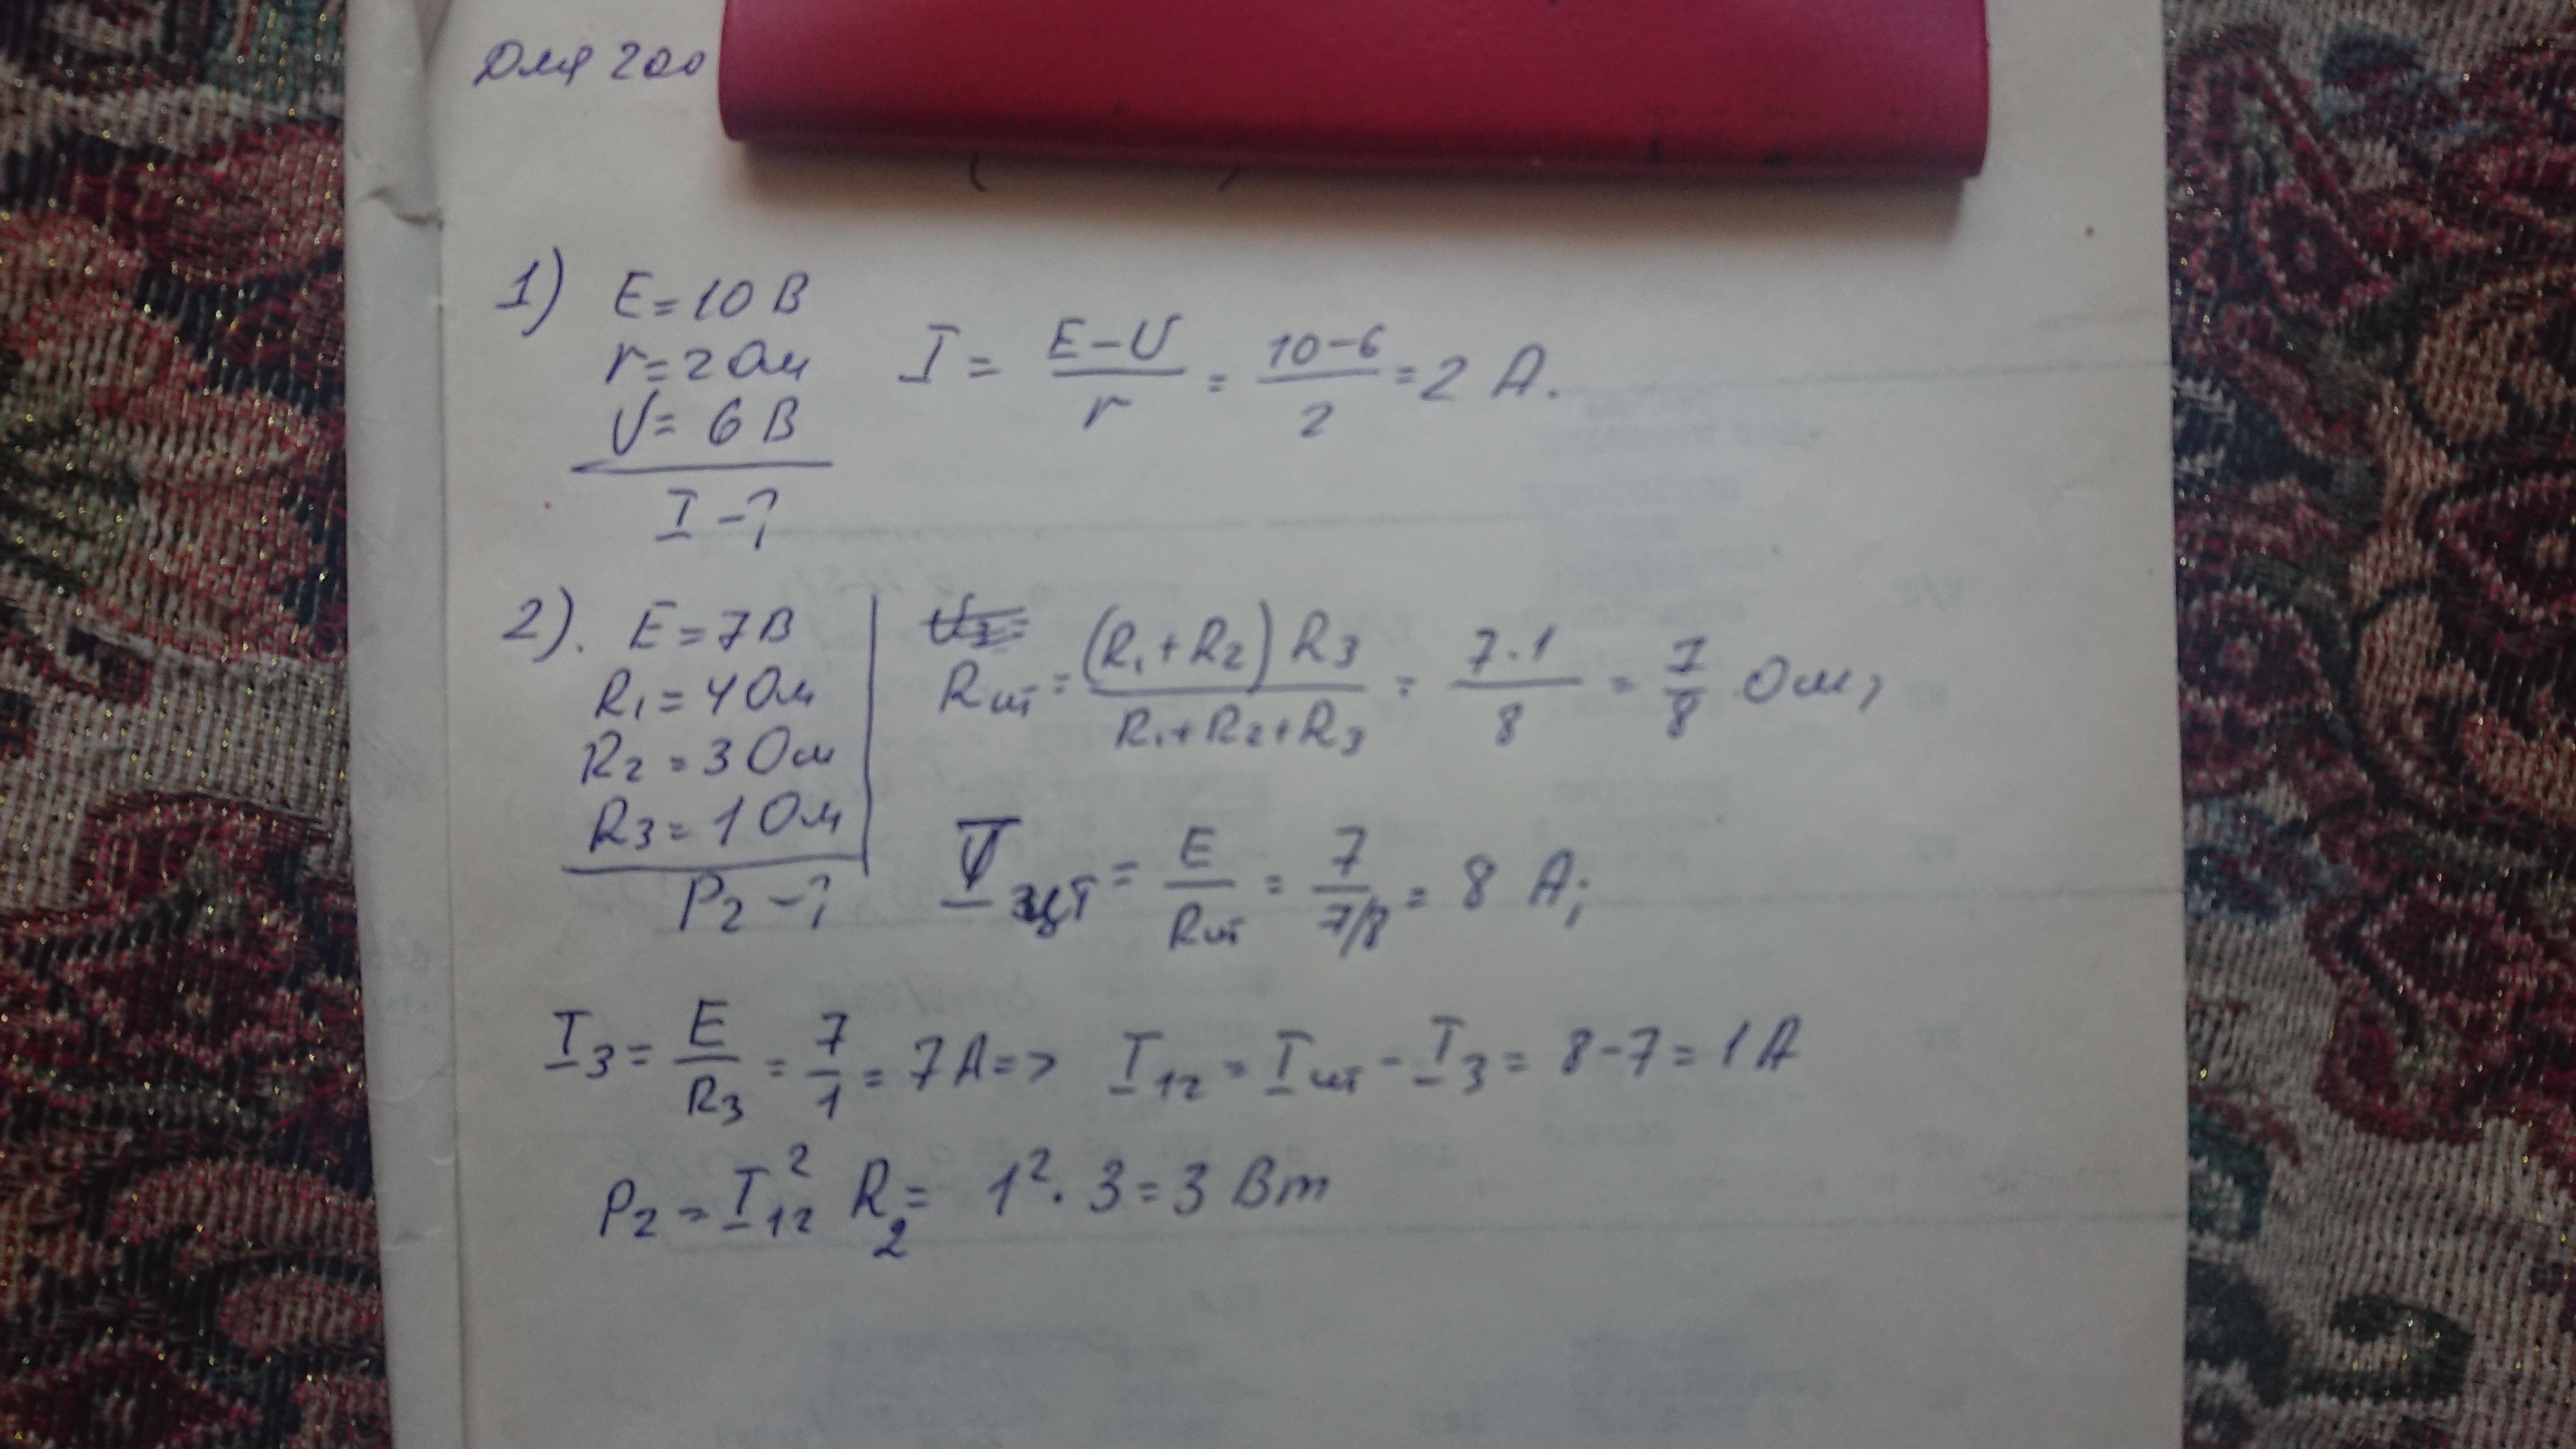 Для 200
1) E = 10 В
r = 2 Ом
U = 6 В
I - ?
I = (E - U)/r = (10 - 6)/2 = 2 А.
2). E = 7 В
R1 = 4 Ом
R2 = 3 Ом
R3 = 1 Ом
P2 - ?
Rцт = ((R1 + R2) R3)/(R1 + R2 + R3) = (7 · 1)/8 = 7/8 Ом;
Iцт = E/Rцт = 7/(7/8) = 8 А;
I3 = E/R3 = 7/1 = 7 А => I12 = Iцт - I3 = 8 - 7 = 1 А
P2 = I12² R2 = 1² · 3 = 3 Вт